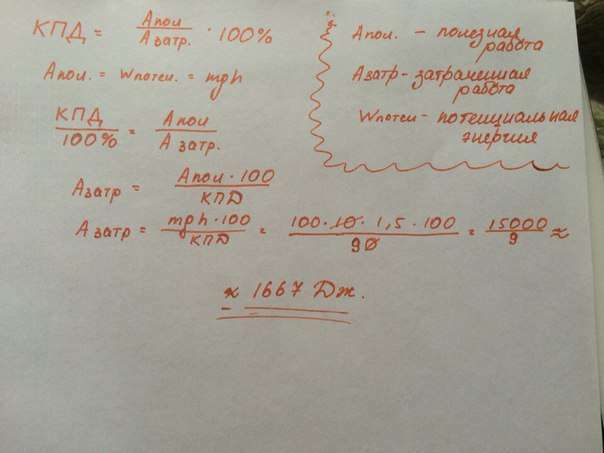 КПД = Апол / Азатр. · 100%
Апол. = Wпотен. = mgh
КПД / 100% = Апол / Азатр.
Азатр = Апол · 100 / КПД
Азатр = mgh · 100 / КПД = 100 · 10 · 1,5 · 100 / 90 = 15000 / 9 ≈
≈ 1667 Дж.
Апол. - полезная
работа
Азатр - затраченная
работа
Wпотен - потенциальная
энергия